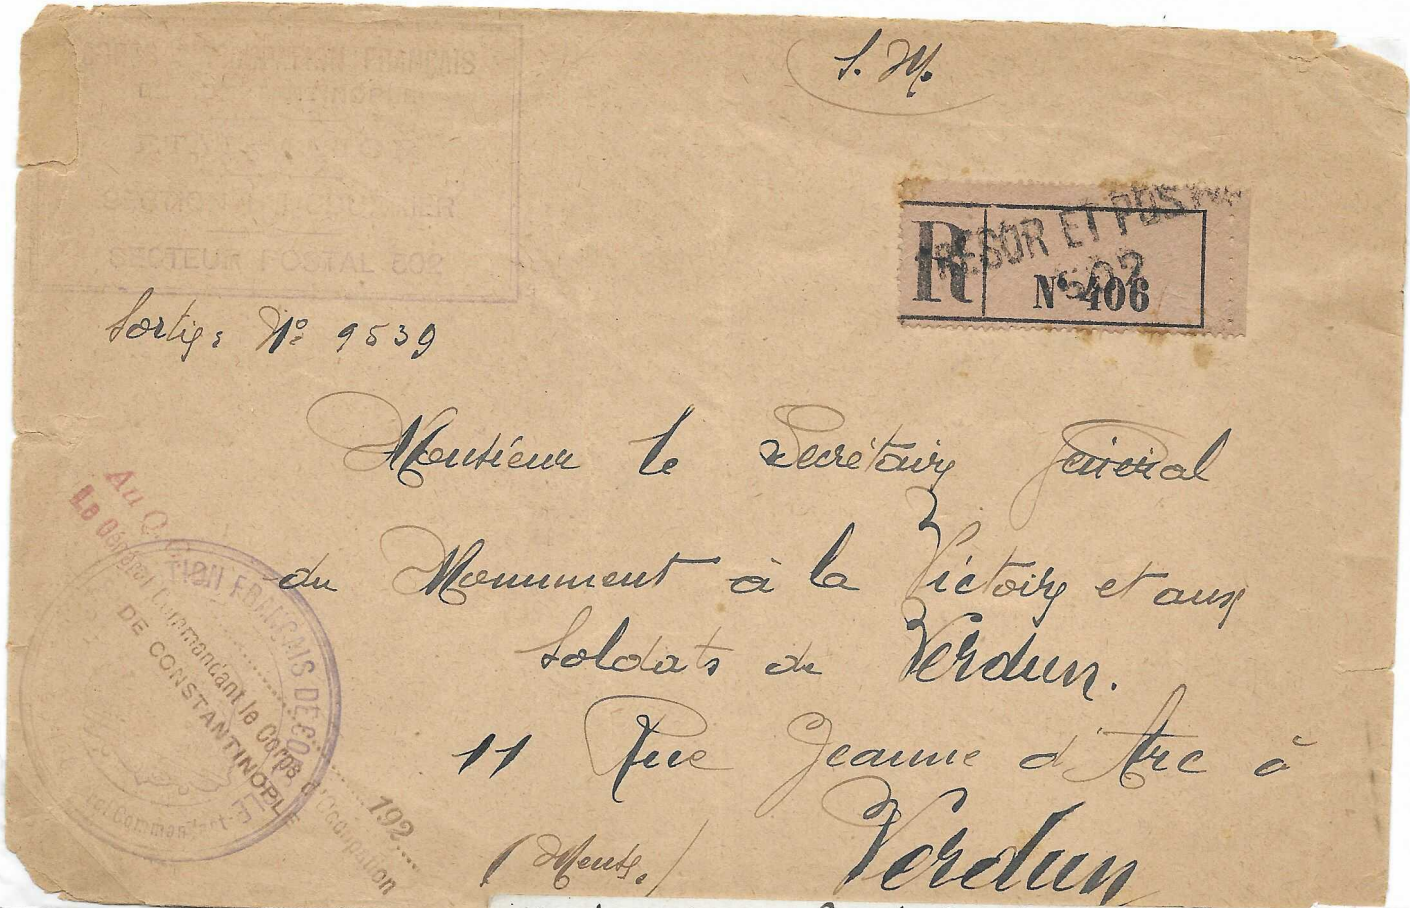 S. M.
FRANÇAIS
SECTEUR POSTAL 502
TRESOR ET POSTES
502
R
N° 406
Sortie : N° 9539
Monsieur le Secrétaire Général
du Monument à la Victoire et aux
Soldats de Verdun.
11 Rue Jeanne d'Arc à
Verdun
(Meuse.)
Au Q.
Le Général Commandant le Corps d'Occupation
DE CONSTANTINOPLE
192
FRANÇAIS DE CO
Commandant